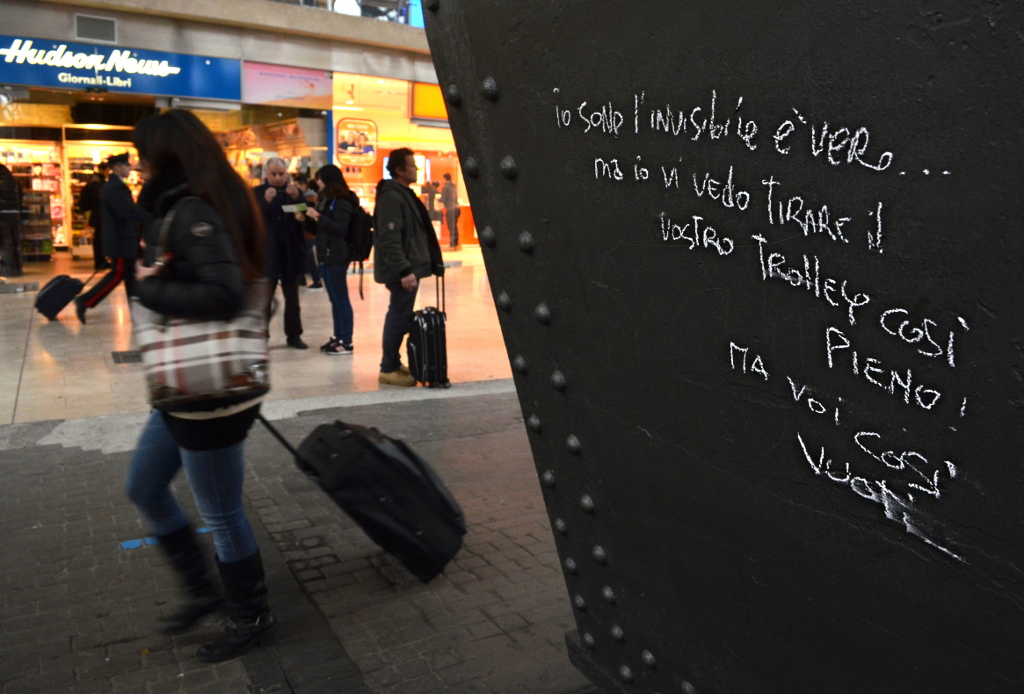 Hudson News
Giornali-Libri
io sono l'invisibile è vero...
ma io vi vedo TIRARE il
vostro Trolley così
PIENO!
MA voi così
VUOTI